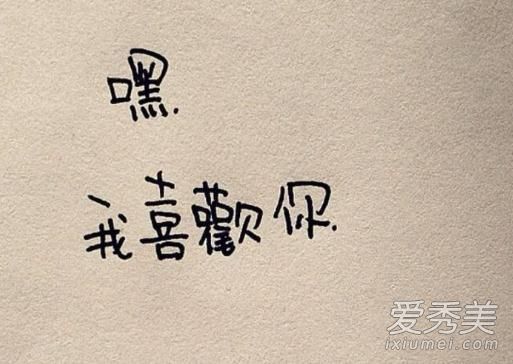 嘿.
我喜歡你.
爱秀美
ixiumei.com